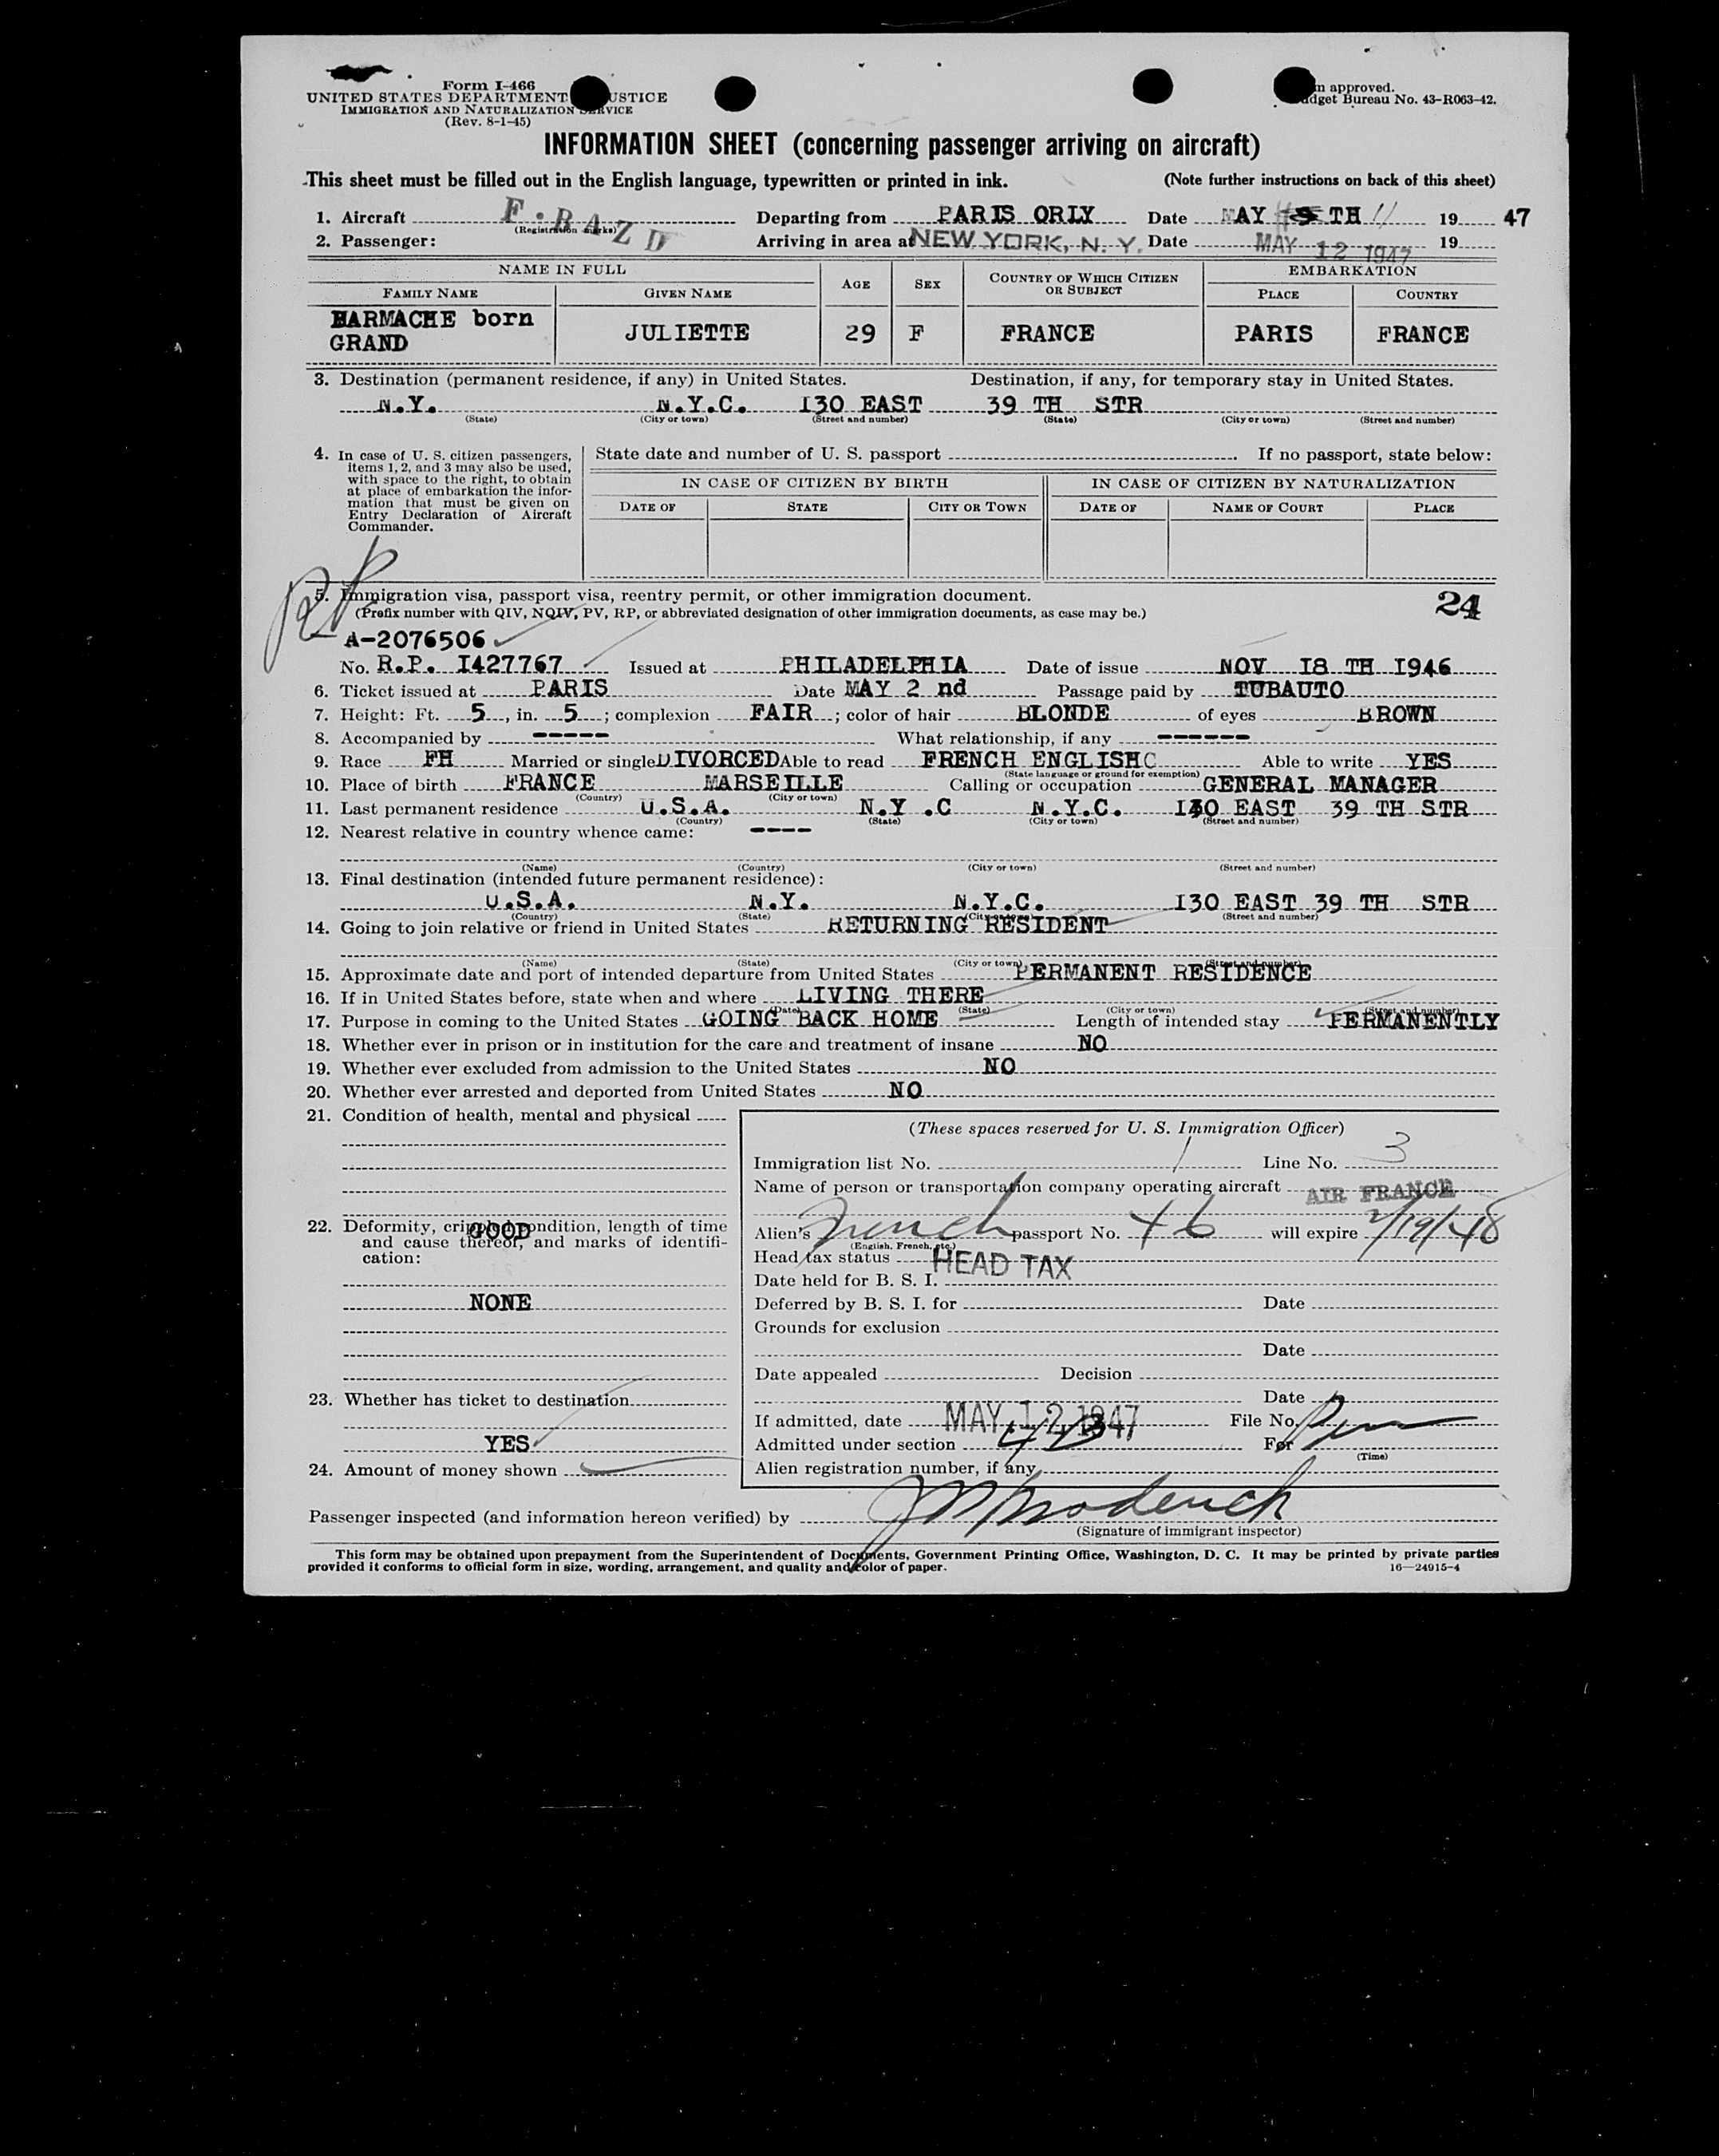 Form I-466
UNITED STATES DEPARTMENT JUSTICE
IMMIGRATION AND NATURALIZATION SERVICE
(Rev. 8-1-45)
approved.
Budget Bureau No. 43-R063-42.
INFORMATION SHEET (concerning passenger arriving on aircraft)
This sheet must be filled out in the English language, typewritten or printed in ink. (Note further instructions on back of this sheet)
1. Aircraft F.BAZD Departing from PARIS ORLY Date MAY TH 11 19 47
(Registration marks)
2. Passenger: Arriving in area at NEW YORK, N. Y. Date MAY 12 1947 19
NAME IN FULL AGE SEX COUNTRY OF WHICH CITIZEN OR SUBJECT EMBARKATION
FAMILY NAME GIVEN NAME PLACE COUNTRY
HARMACHE born JULIETTE 29 F FRANCE PARIS FRANCE
GRAND
3. Destination (permanent residence, if any) in United States. Destination, if any, for temporary stay in United States.
N.Y. N.Y.C. I30 EAST 39 TH STR
(State) (City or town) (Street and number) (State) (City or town) (Street and number)
4. In case of U. S. citizen passengers, State date and number of U. S. passport If no passport, state below:
items 1, 2, and 3 may also be used,
with space to the right, to obtain IN CASE OF CITIZEN BY BIRTH IN CASE OF CITIZEN BY NATURALIZATION
at place of embarkation the infor-
mation that must be given on DATE OF STATE CITY OR TOWN DATE OF NAME OF COURT PLACE
Entry Declaration of Aircraft
Commander.
RP
5. Immigration visa, passport visa, reentry permit, or other immigration document. 24
(Prefix number with QIV, NQIV, PV, RP, or abbreviated designation of other immigration documents, as case may be.)
A-2076506
No. R.P. I427767 Issued at PHILADELPHIA Date of issue NOV I8 TH I946
6. Ticket issued at PARIS Date MAY 2 nd Passage paid by TUBAUTO
7. Height: Ft. 5, in. 5; complexion FAIR; color of hair BLONDE of eyes BROWN
8. Accompanied by ----- What relationship, if any ------
9. Race FH Married or single DIVORCED Able to read FRENCH ENGLISH C Able to write YES
(State language or ground for exemption)
10. Place of birth FRANCE MARSEILLE Calling or occupation GENERAL MANAGER
(Country) (City or town)
11. Last permanent residence U.S.A. N.Y .C N.Y.C. I30 EAST 39 TH STR
(Country) (State) (City or town) (Street and number)
12. Nearest relative in country whence came: ----
(Name) (Country) (City or town) (Street and number)
13. Final destination (intended future permanent residence):
U.S.A. N.Y. N.Y.C. I30 EAST 39 TH STR
(Country) (State) (City or town) (Street and number)
14. Going to join relative or friend in United States RETURNING RESIDENT
(Name) (State) (City or town) (Street and number)
15. Approximate date and port of intended departure from United States PERMANENT RESIDENCE
16. If in United States before, state when and where LIVING THERE
(Date) (State) (City or town) (Street and number)
17. Purpose in coming to the United States GOING BACK HOME Length of intended stay PERMANENTLY
18. Whether ever in prison or in institution for the care and treatment of insane NO
19. Whether ever excluded from admission to the United States NO
20. Whether ever arrested and deported from United States NO
21. Condition of health, mental and physical
GOOD
22. Deformity, crippled condition, length of time
and cause thereof, and marks of identifi-
cation:
NONE
23. Whether has ticket to destination
YES
24. Amount of money shown
(These spaces reserved for U. S. Immigration Officer)
Immigration list No. 1 Line No. 3
Name of person or transportation company operating aircraft AIR FRANCE
Alien's French passport No. 46 will expire 2/19/48
(English, French, etc.)
Head tax status HEAD TAX
Date held for B. S. I.
Deferred by B. S. I. for Date
Grounds for exclusion
Date
Date appealed Decision
Date
If admitted, date MAY 12 1947 File No.
Admitted under section 4 B For Perm
(Time)
Alien registration number, if any
Passenger inspected (and information hereon verified) by J M Broderick
(Signature of immigrant inspector)
This form may be obtained upon prepayment from the Superintendent of Documents, Government Printing Office, Washington, D. C. It may be printed by private parties
provided it conforms to official form in size, wording, arrangement, and quality and color of paper. 16—24915-4